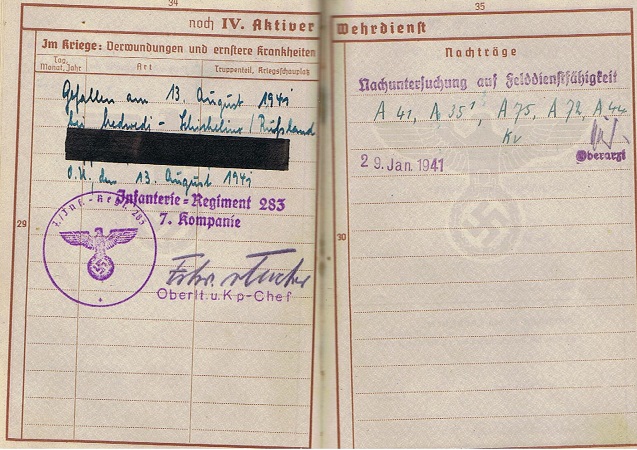 34
noch IV. Aktiver
Im Kriege: Verwundungen und ernstere Krankheiten
Tag, Monat, Jahr
Art
Truppenteil, Kriegsschauplatz
Gefallen am 13. August 1941
bei / Rußland
O.U. den 13. August 1941
Infanterie-Regiment 283
7. Kompanie
Oberlt.u.Kp-Chef
29
35
Wehrdienst
Nachträge
Nachuntersuchung auf Felddienstfähigkeit
A 41, A 35, A 75, A 72, A 44
Kv
Oberarzt
29. Jan. 1941
30